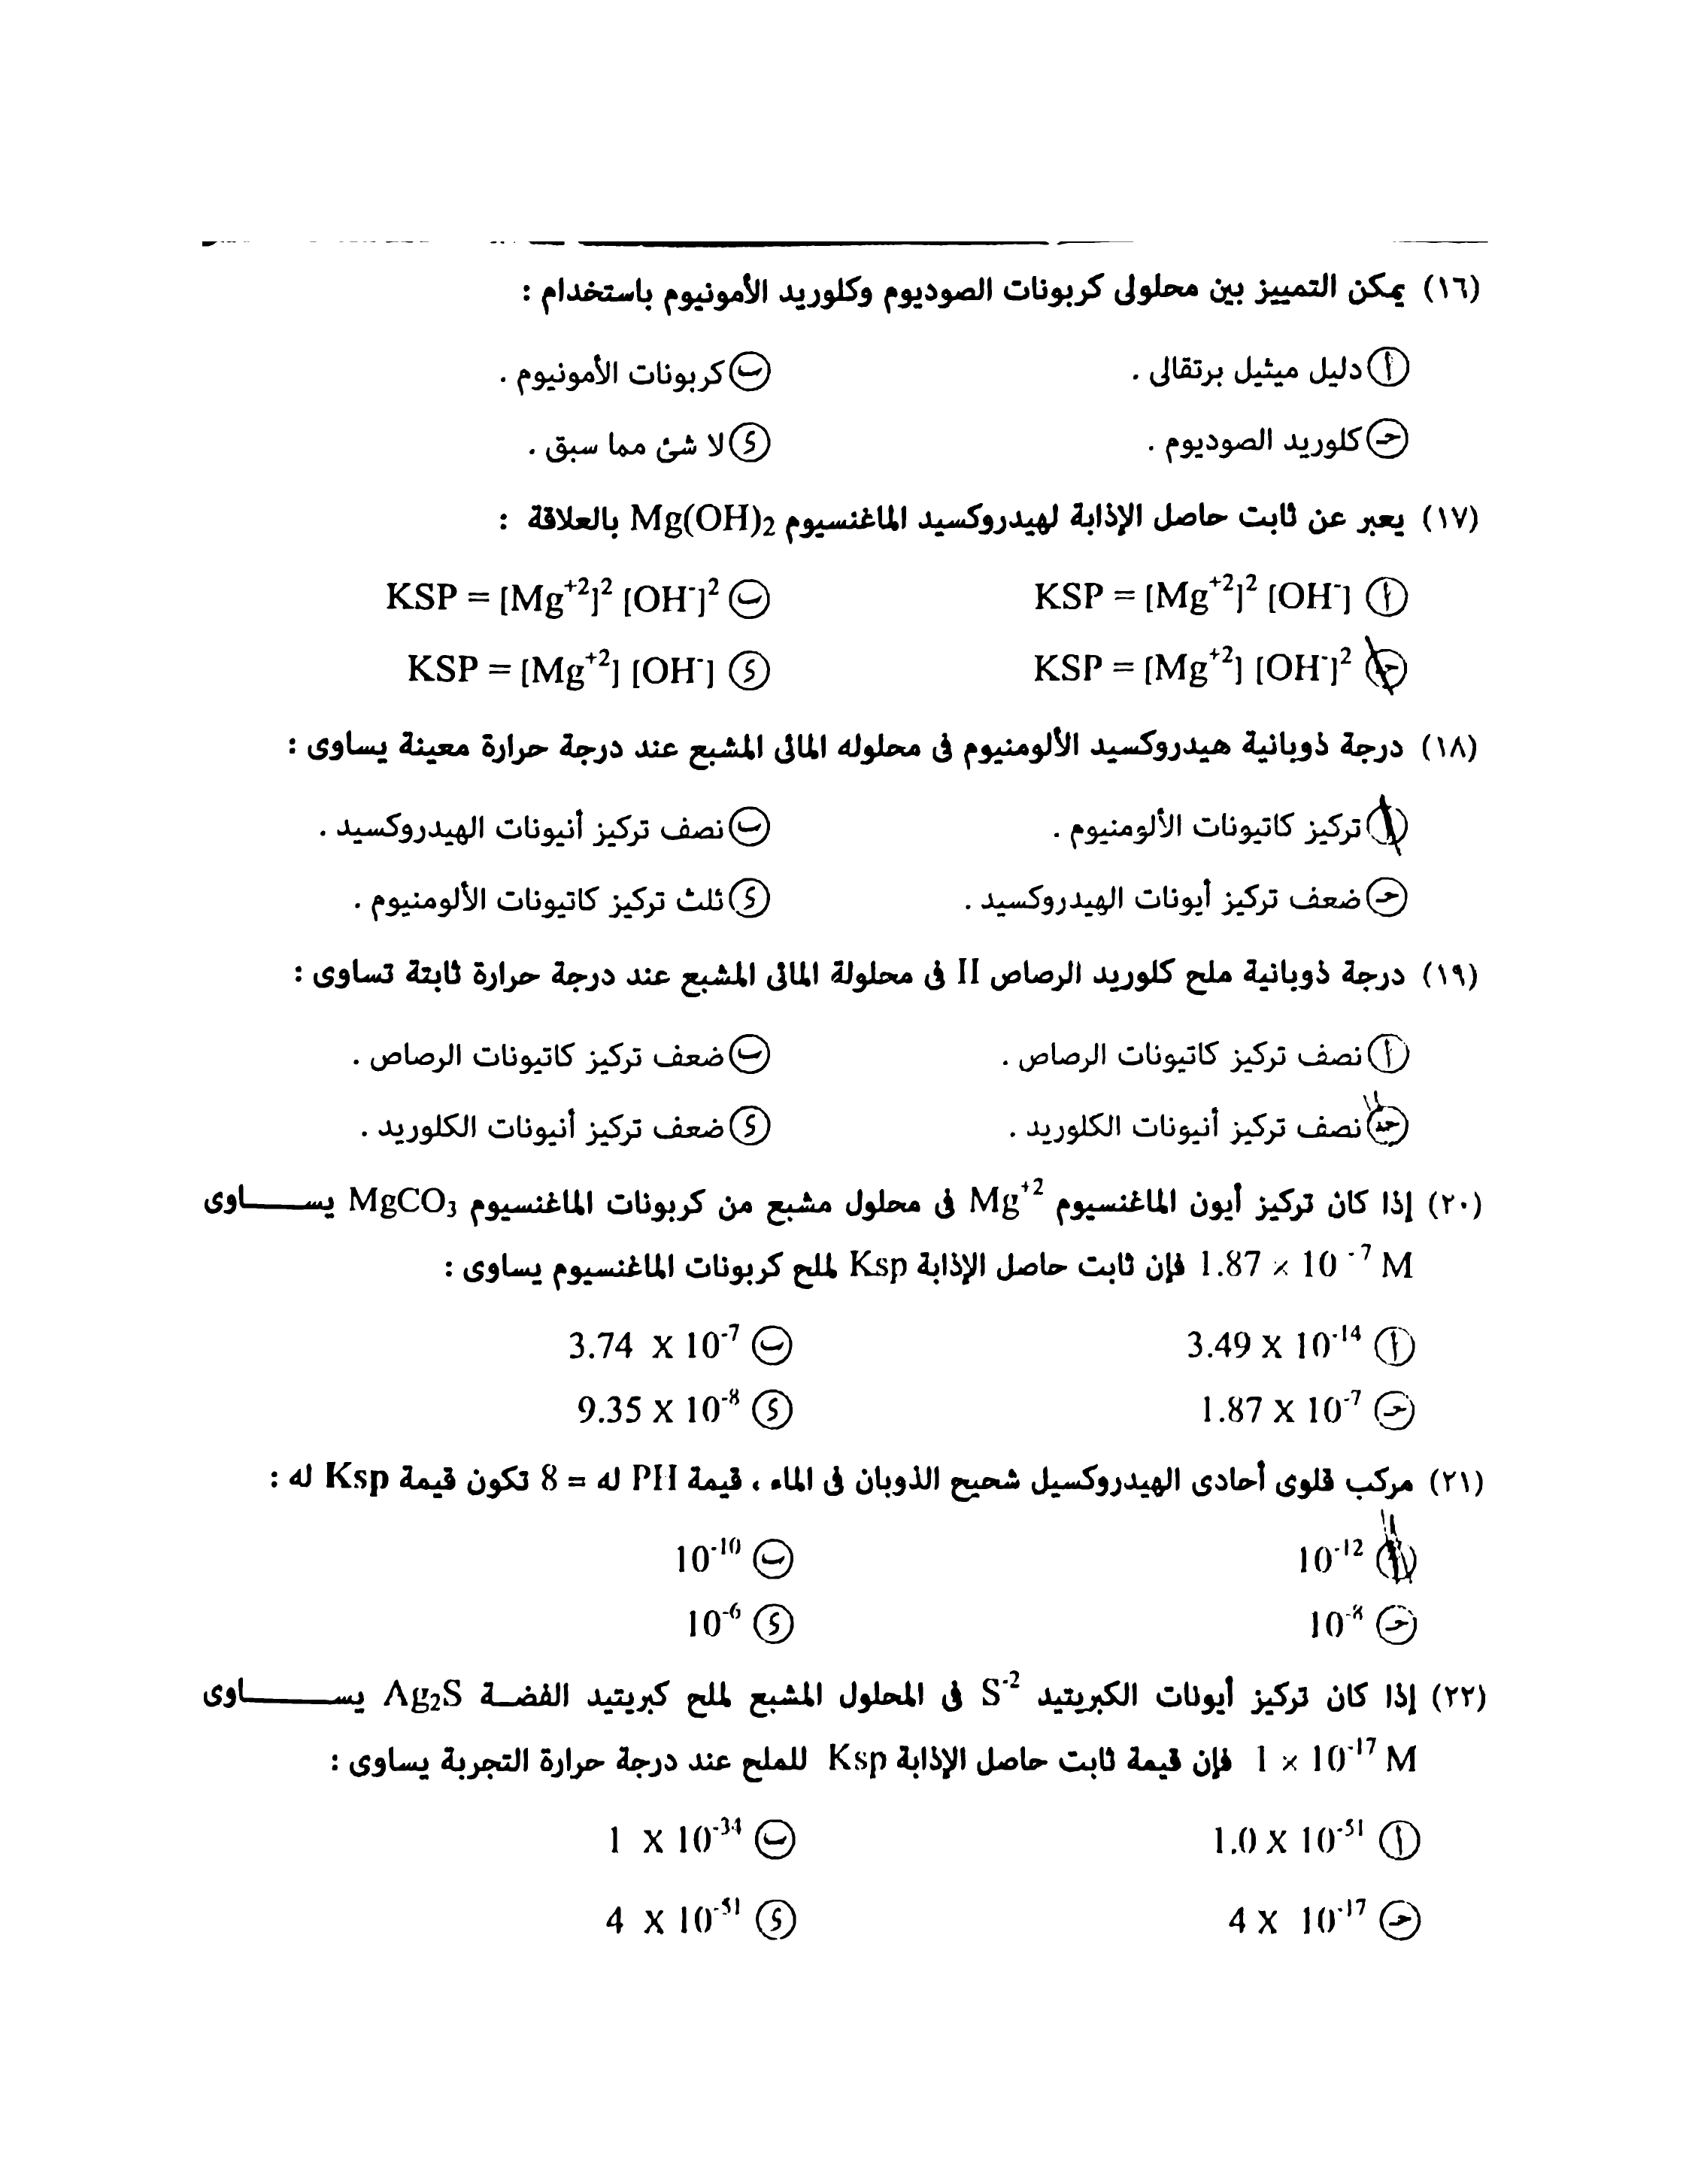 (١٦) يمكن التمييز بين محلولى كربونات الصوديوم وكلوريد الأمونيوم باستخدام :
أ دليل ميثيل برتقالى . ب كربونات الأمونيوم .
حـ كلوريد الصوديوم . د لا شئ مما سبق .
(١٧) يعبر عن ثابت حاصل الإذابة لهيدروكسيد الماغنسيوم Mg(OH)₂ بالعلاقة :
أ KSP = [Mg⁺²]² [OH⁻] ب KSP = [Mg⁺²]² [OH⁻]²
حـ KSP = [Mg⁺²] [OH⁻]² د KSP = [Mg⁺²] [OH⁻]
(١٨) درجة ذوبانية هيدروكسيد الألومنيوم فى محلوله المائى المشبع عند درجة حرارة معينة يساوى :
أ تركيز كاتيونات الألومنيوم . ب نصف تركيز أنيونات الهيدروكسيد .
حـ ضعف تركيز أيونات الهيدروكسيد . د ثلث تركيز كاتيونات الألومنيوم .
(١٩) درجة ذوبانية ملح كلوريد الرصاص II فى محلولة المائى المشبع عند درجة حرارة ثابتة تساوى :
أ نصف تركيز كاتيونات الرصاص . ب ضعف تركيز كاتيونات الرصاص .
حـ نصف تركيز أنيونات الكلوريد . د ضعف تركيز أنيونات الكلوريد .
(٢٠) إذا كان تركيز أيون الماغنسيوم Mg⁺² فى محلول مشبع من كربونات الماغنسيوم MgCO₃ يســـاوى
1.87 × 10⁻⁷ M فإن ثابت حاصل الإذابة Ksp لملح كربونات الماغنسيوم يساوى :
أ 3.49 X 10⁻¹⁴ ب 3.74 X 10⁻⁷
حـ 1.87 X 10⁻⁷ د 9.35 X 10⁻⁸
(٢١) مركب قلوى أحادى الهيدروكسيل شحيح الذوبان فى الماء ، قيمة PH له = 8 تكون قيمة Ksp له :
أ 10⁻¹² ب 10⁻¹⁰
حـ 10⁻⁸ د 10⁻⁶
(٢٢) إذا كان تركيز أيونات الكبريتيد S⁻² فى المحلول المشبع لملح كبريتيد الفضـة Ag₂S يســـاوى
1 × 10⁻¹⁷ M فإن قيمة ثابت حاصل الإذابة Ksp للملح عند درجة حرارة التجربة يساوى :
أ 1.0 X 10⁻⁵¹ ب 1 X 10⁻³⁴
حـ 4 X 10⁻¹⁷ د 4 X 10⁻⁵¹